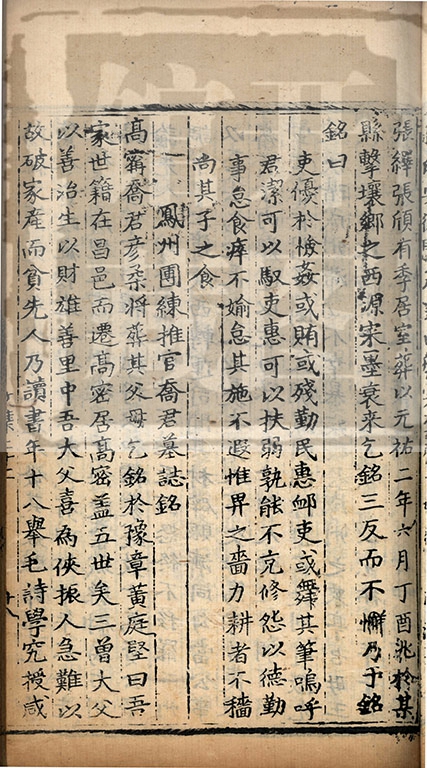 張繹張頎有季居室葬以元祐二年六月丁酉兆於某
縣擊壤鄉之西源宋墨衰來乞銘三反而不懈乃予銘
銘曰
吏優於憸姦或賄或殘勤民惠卹吏或舞其筆嗚呼
君潔可以馭吏惠可以扶弱孰能不克修怨以德勤
事怠食瘁不媮怠其施不遐惟畀之嗇力耕者不穡
尚其子之食
鳳州團練推官喬君墓誌銘
高甯喬君彥柔將葬其父母乞銘於豫章黃庭堅曰吾
家世籍在昌邑而遷高密居高密盖五世矣三曾大父
以善治生以財雄善里中吾大父喜為俠振人急難以
故破家產而貧先人乃讀書年十八舉毛詩學究授咸